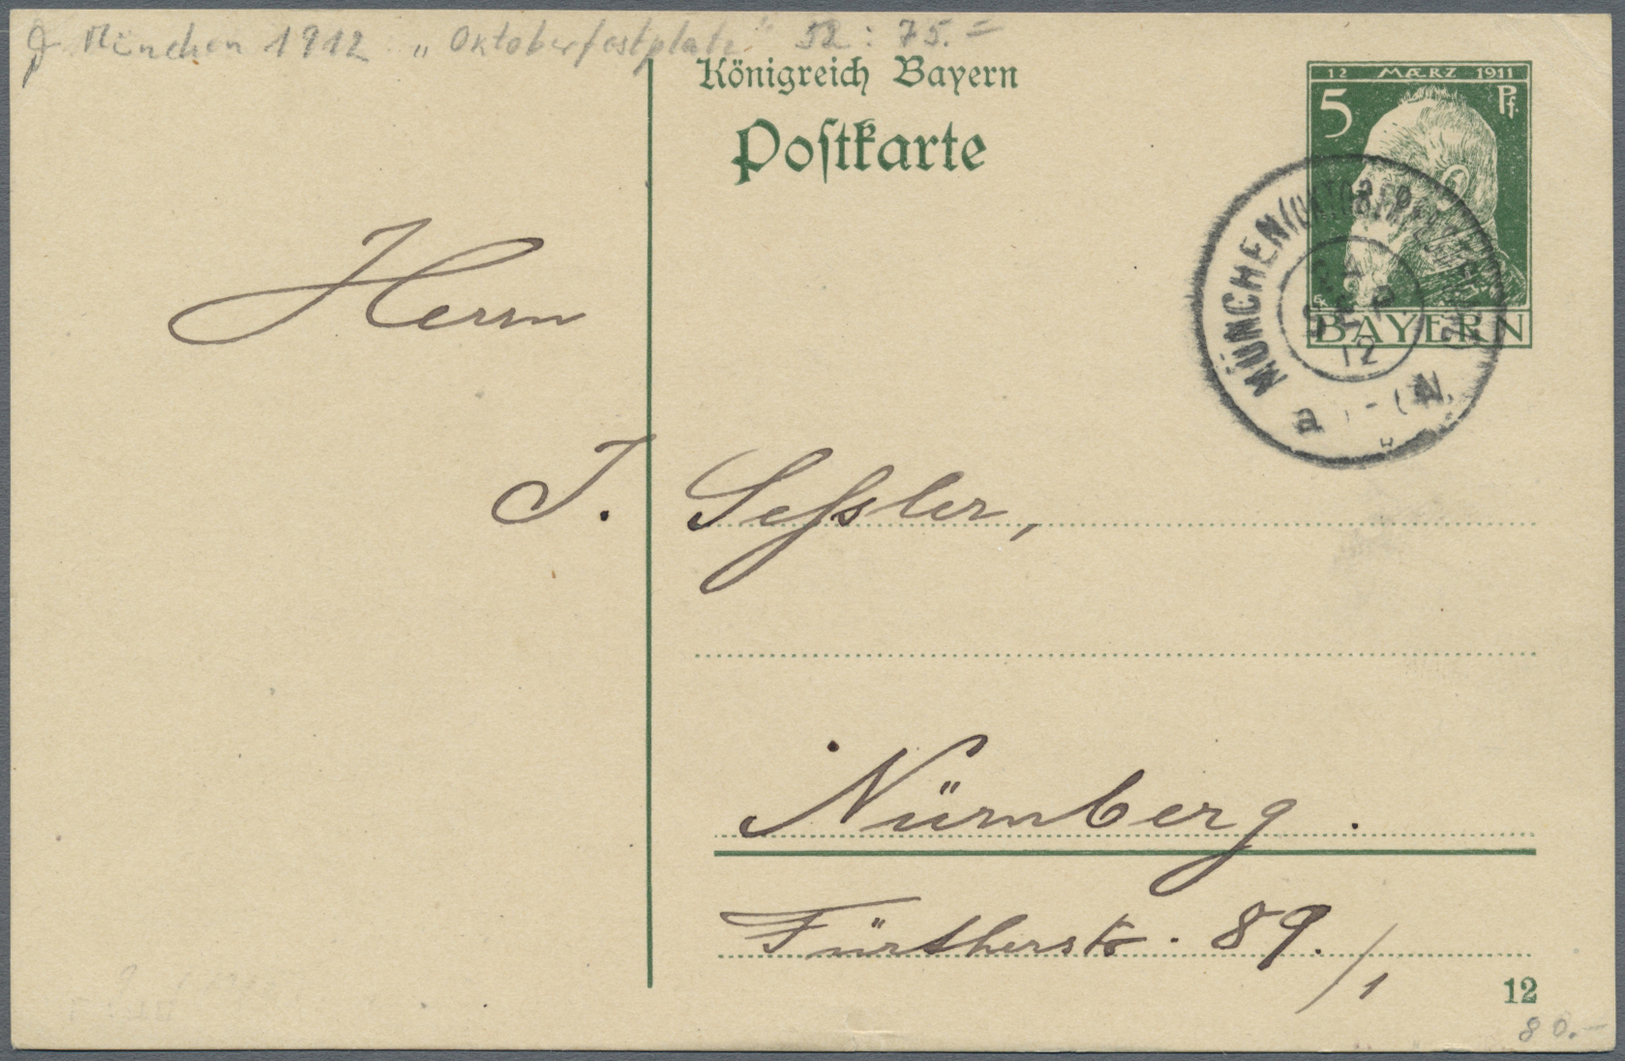 München 1912 „Oktoberfestplatz" 52: 75.=
Königreich Bayern
Postkarte
12 MÆRZ 1911
5 Pf.
BAYERN
MÜNCHEN
12
a
Herrn
J. Seßler,
Nürnberg.
Fürtherstr. 89./1
12
80.-